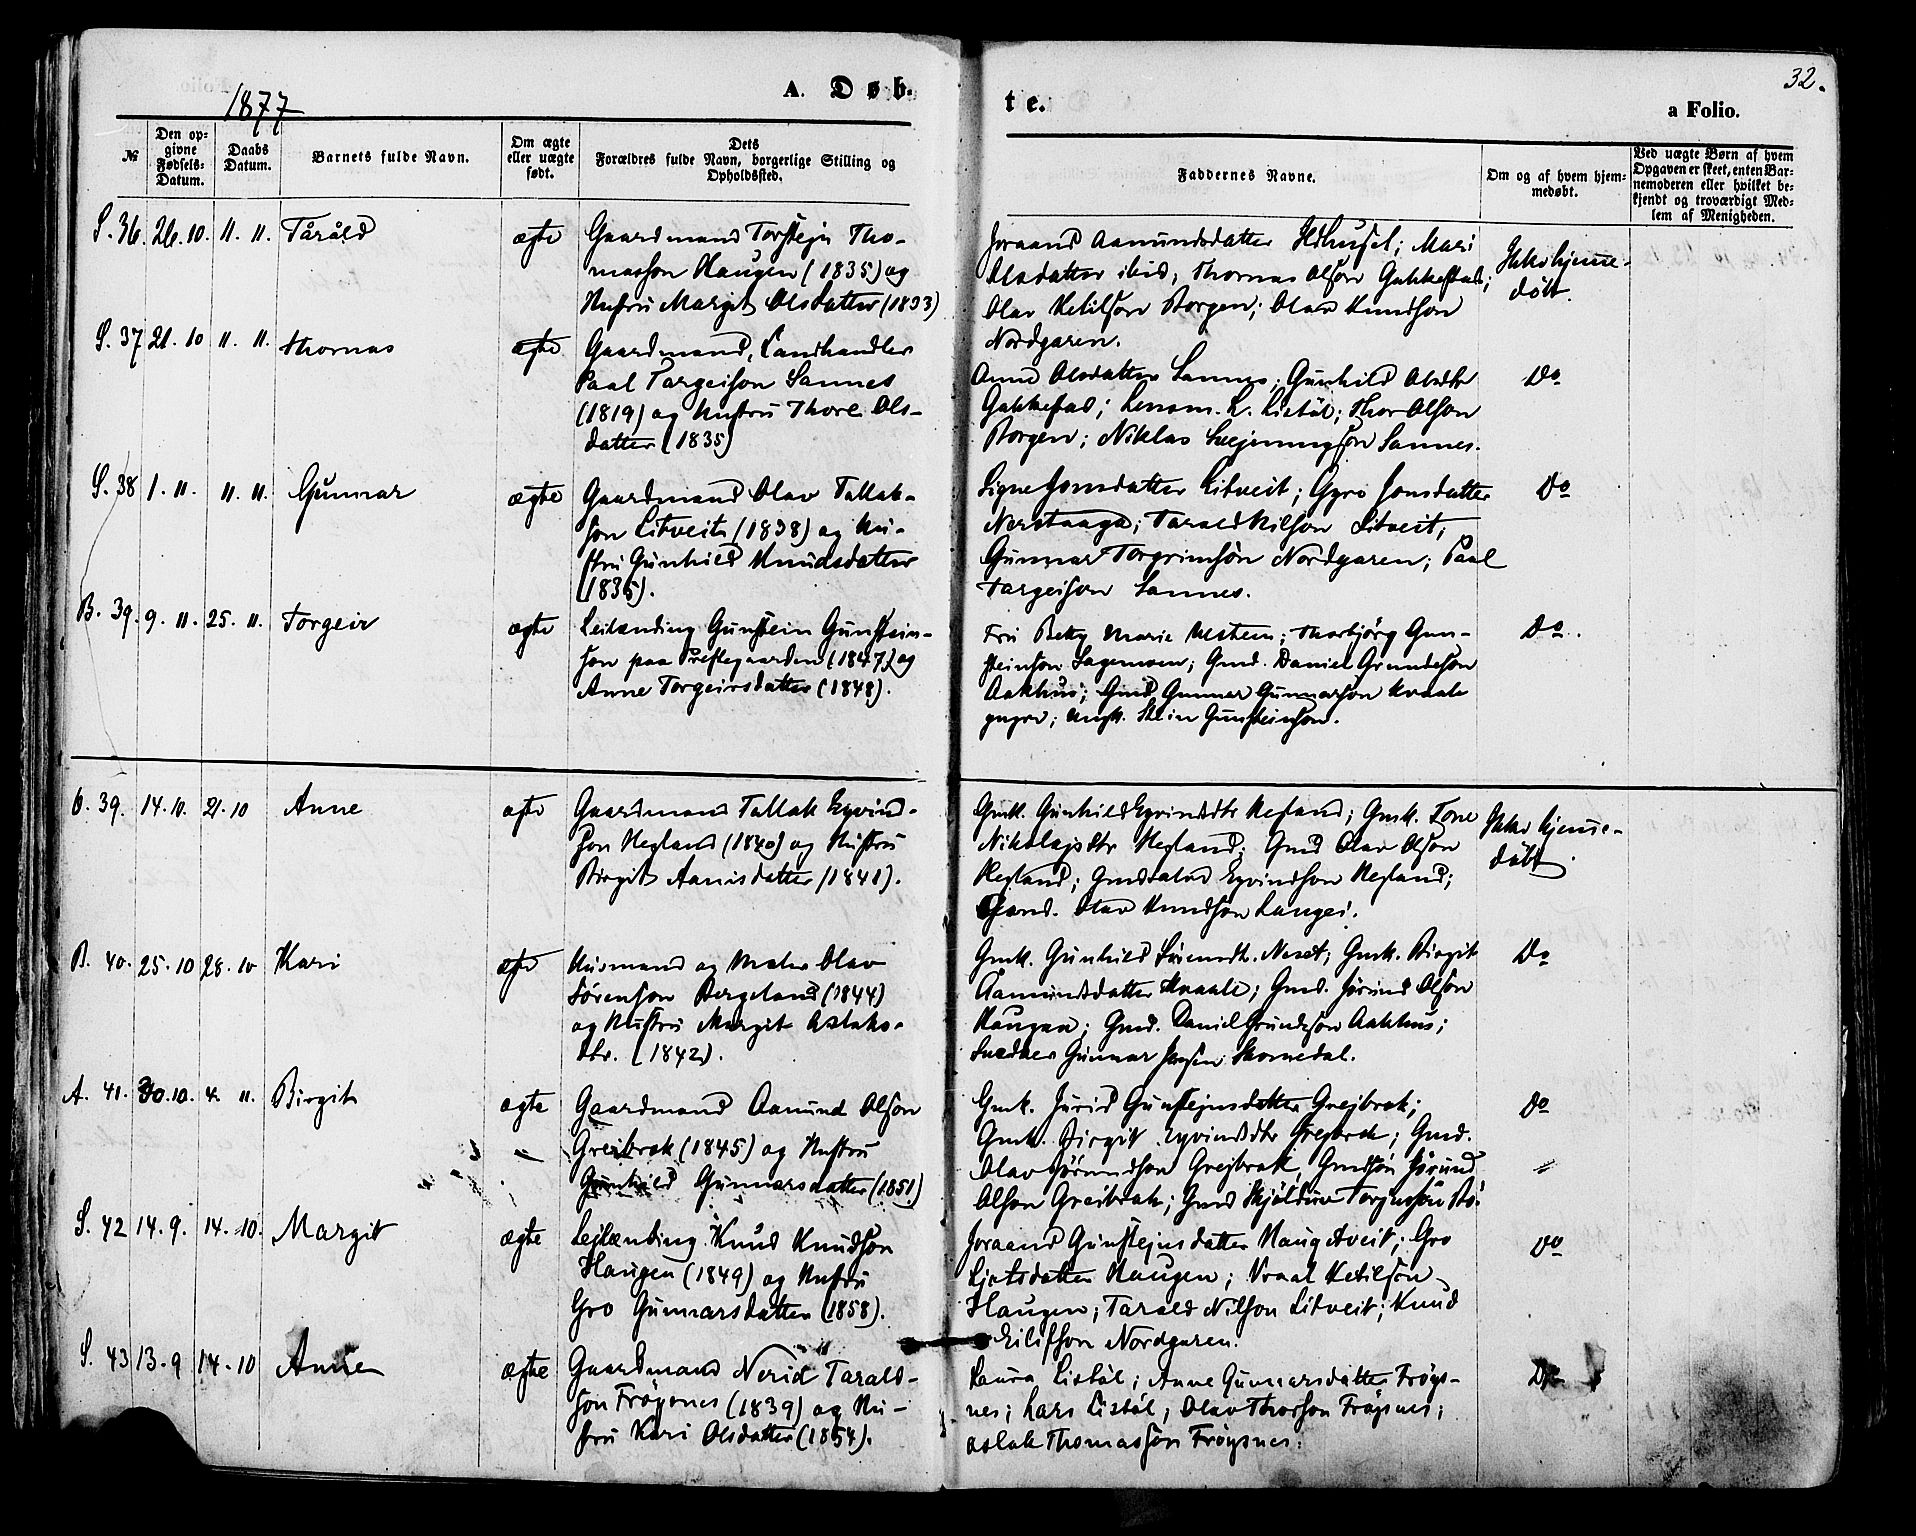 32.
1877
A. Døb-
te.
a Folio.
№
Den op-
givne
Fødsels-
Datum.
Daabs
Datum.
Barnets fulde Navn.
Om ægte
eller uægte
født.
Dets
Forældres fulde Navn, borgerlige Stilling og
Opholdssted.
Faddernes Navne.
Om og af hvem hjem-
medøbt.
Ved uægte Børn af hvem
Opgaven er skeet, enten Bar-
nemoderen eller hvilket be-
kjendt og troværdigt Med-
lem af Menigheden.
S. 36. 26. 10. 11. 11. Tåråld ægte
Gaardmand Torstejn Tho-
masson Haugen (1835) og
Hustru Margit Olsdatter (1833)
Joraand Aamundsdatter; Mari
Olsdatter ibid; Thomas Olson Gakkestad;
Olav Ketilson Borgen; Olav Knudson
Nordgaren.
Ikke hjemme-
døbt.
S. 37 21. 10 11. 11. Thomas ægte
Gaardmand, Landhandler
Paal Targeison Sannes
(1819) og Hustru Thore Ols-
datter (1835)
Anne Olsdatter Sannes; Gunhild Olsdtr
Gakkestad; L. Listøl; Thor Olson
Borgen; Niklas Svejnungson Sannes.
Do
S. 38 1. 11. 11. 11. Gunnar ægte
Gaardmand Olav Tallak-
son Litveit (1838) og Hu-
stru Gunhild Knudsdatter
(1836).
Signe Jonsdatter Litveit; Gyro Jonsdatter
Nerstaaga; Tarald Nilson Litveit;
Gunnar Torgrimson Nordgaren; Paal
Targeison Sannes.
Do
B. 39. 9. 11. 25. 11. Torgeir ægte
Leilænding Gunstein Gunstein-
son paa Prestegaarden (1847) og
Anne Torgeirsdatter (1848).
Fru Betty Marie; Thorbjörg Gun-
steinson Sagemoen; Gmd. Daniel Grundeson
Aakhus; Gmd. Gunnar Gunnarson Kvaale
; Ungk. Stein Gunsteinson.
Do.
39. 14. 10. 21. 10 Anne ægte
Gaardmand Tallak Eyvind-
son Hegland (1840) og Hustru
Birgit Aanisdatter (1841).
Gmk. Gunhild Eyvindsdtr Hegland; Gmk. Tone
Nikolajsdtr Hegland; Gmd Olav Olson
Hegland; Eyvindson Hegland;
Olav Knudson Langei.
Ikke hjemme-
døbt.
B. 40. 25. 10 28. 10 Kari ægte
Husmand og Maler Olav
Sörenson Bergeland (1844)
og Hustru Margit Aslaks-
dtr. (1842).
Gmk. Gunhild Neset; Gmk. Birgit
Aamundsdatter Kvaale; Gmd. Jörund Olson
Haugen; Gmd. Daniel Grundeson Aakhus;
Snedker Gunnar Skomedal.
Do
A. 41. 30. 10. 4. 11. Birgit ægte
Gaardmand Aamund Olson
Greibrok (1845) og Hustru
Gunhild Gunnarsdatter (1851)
Gmk. Jurid Gunstejnsdatter Grejbrok;
Gmk. Birgit Eyvindsdtr Grejbrok; Gmd.
Olav Jörundson Grejbrok, Jörund
Olson Greibrok; Gmd Skjöldun Torjusson Bö.
Do
S. 42 14. 9. 14. 10. Margit ægte
Lejlænding Knud Knudson
Haugen (1849) og Hustru
Gro Gunnarsdatter (1858).
Joraand Gunstejnsdatter Haugetveit; Gro
Ljotsdatter Haugen; Vraal Ketilson
Haugen; Tarald Nilson Litveit; Knud
Eilifson Nordgaren.
Do
S. 43 13. 9 14. 10 Anne ægte
Gaardmand Nerid Tarald-
son Fröysnes (1839) og Hu-
stru Kari Olsdatter (1854).
Laura Listöl; Anne Gunnarsdatter Fröys-
nes; Lars Listöl; Olav Thorson Fröysnes;
Aslak Thomasson Fröysnes.
Do